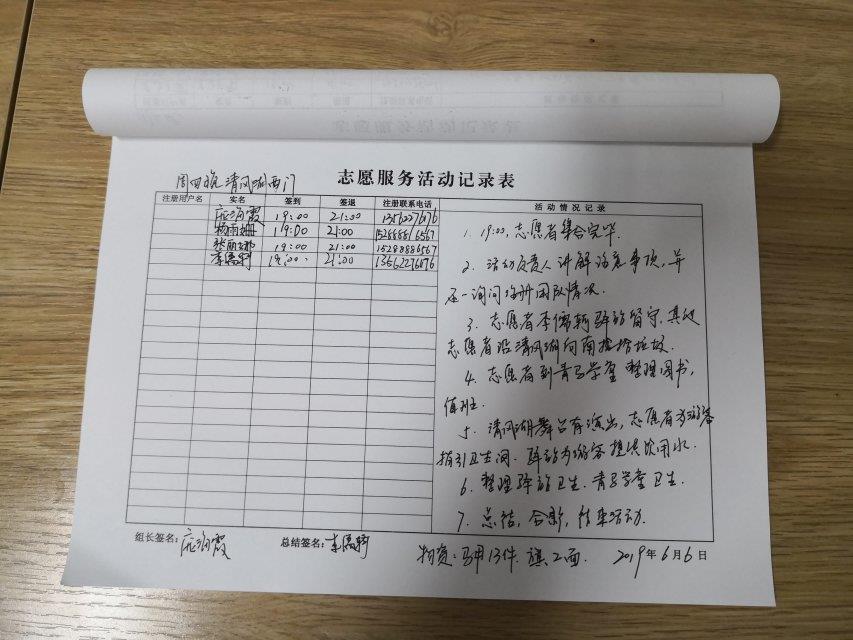 周四晚清风湖西门
志愿服务活动记录表
注册用户名 实名 签到 签退 注册联系电话
庞海霞 19:00 21:00 13562276876
杨雨姗 19:00 21:00 15288886567
张丽娜 19:00 21:00 15288886567
李儒轲 19:00 21:00 13562276876
活动情况记录
1. 19:00, 志愿者集合完毕.
2. 活动负责人讲解注意事项, 并
逐一询问注册团队情况.
3. 志愿者李儒轲驿站留守, 其他
志愿者沿清风湖向南捡拾垃圾.
4. 志愿者到青马学堂整理图书,
值班.
5. 清风湖舞台有演出, 志愿者为游客
指引卫生间. 驿站为游客提供饮用水.
6. 整理驿站卫生. 青马学堂卫生.
7. 总结, 合影, 结束活动.
组长签名: 庞海霞 总结签名: 李儒轲 物资: 马甲13件. 旗2面. 2019年6月6日